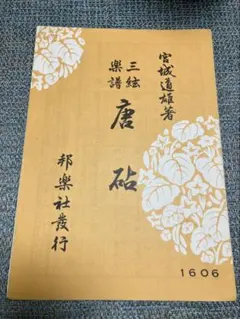 宮城道雄著
三絃
楽譜
唐砧
邦楽社發行
1606